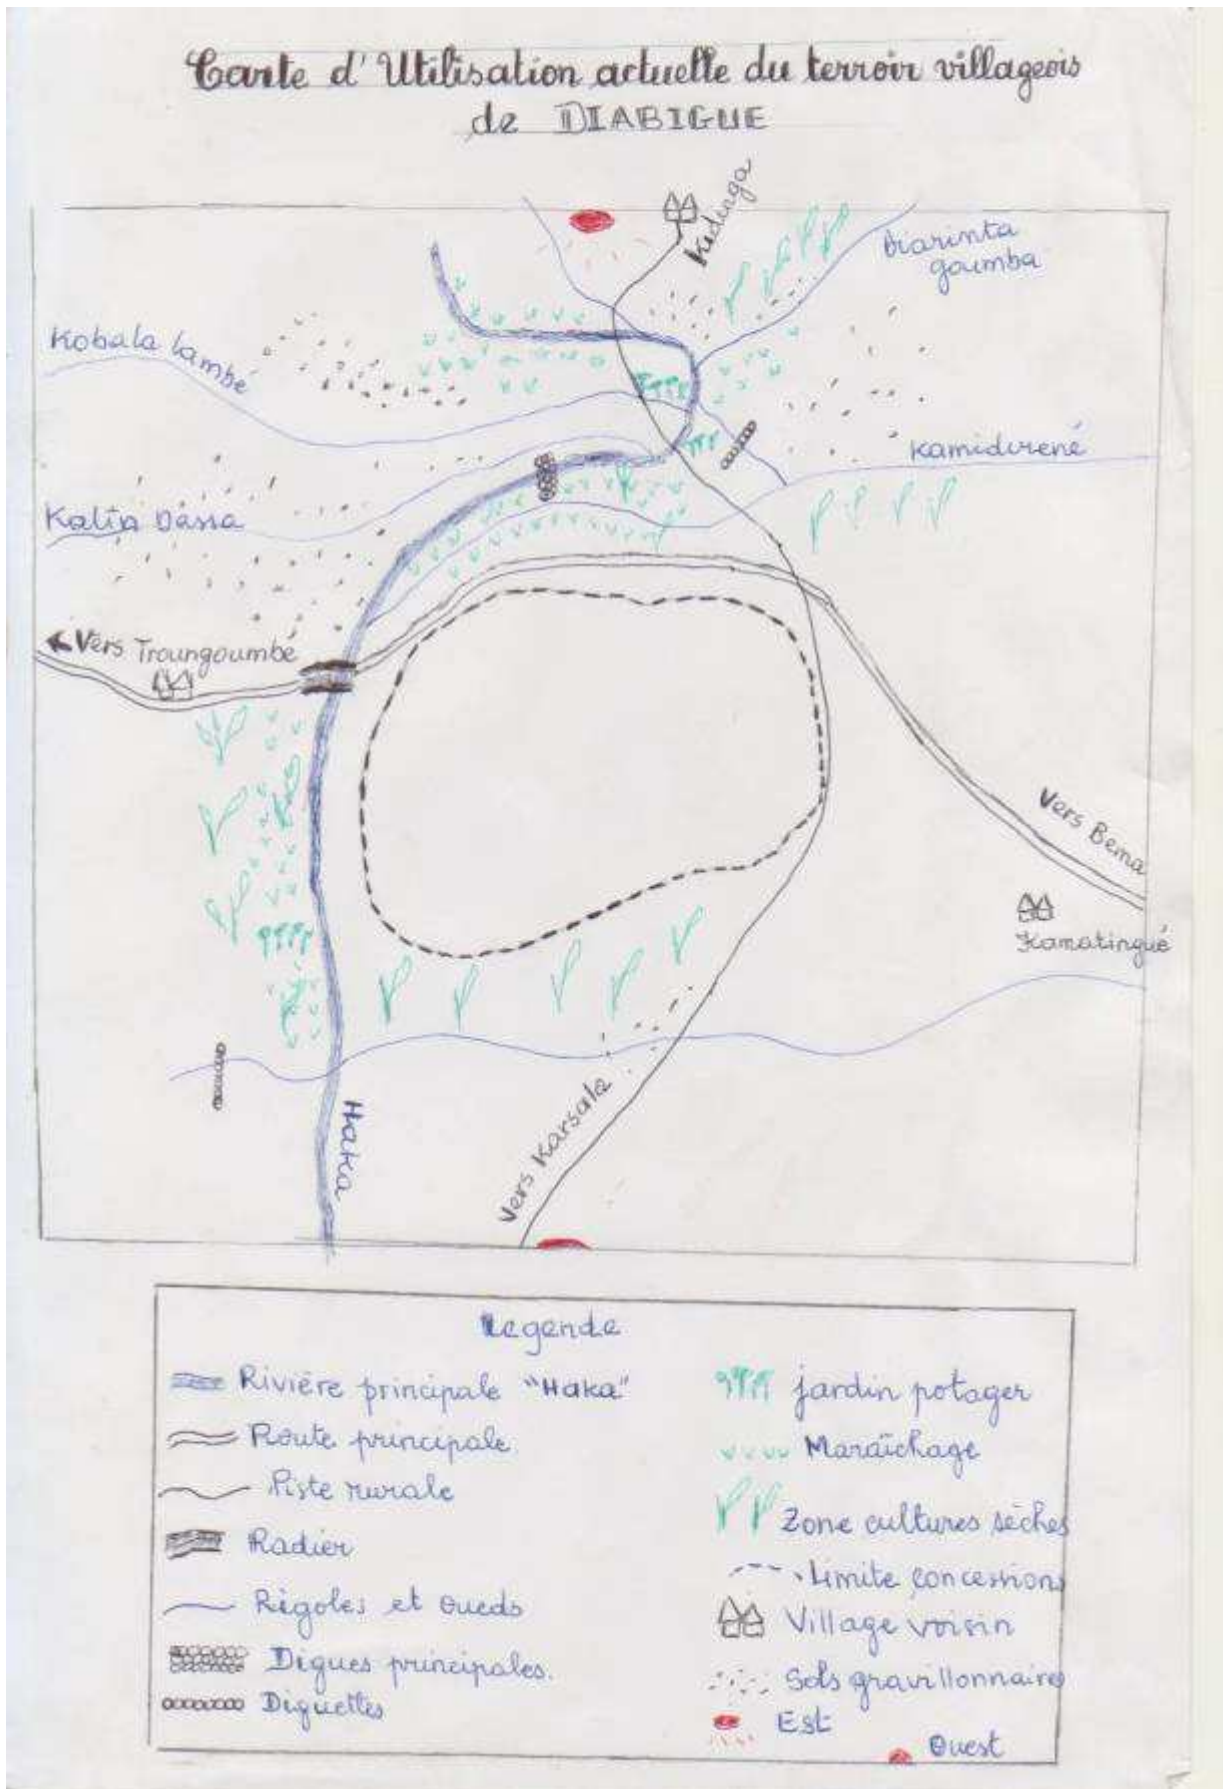 Carte d'Utilisation actuelle du terroir villageois
de DIABIGUE
Kedinga
Diarinta
goumba
Kobala lambé
Kamidirené
Kalin Dassa
Vers Troungoumbé
Vers Bema
Kamatingué
Haka
Vers Karsala
Legende
Rivière principale "Haka"
Route principale
Piste rurale
Radier
Rigoles et oueds
Digues principales.
Diguettes
jardin potager
Maraîchage
Zone cultures sèches
Limite concessions
Village voisin
Sols gravillonnaire
Est
Ouest